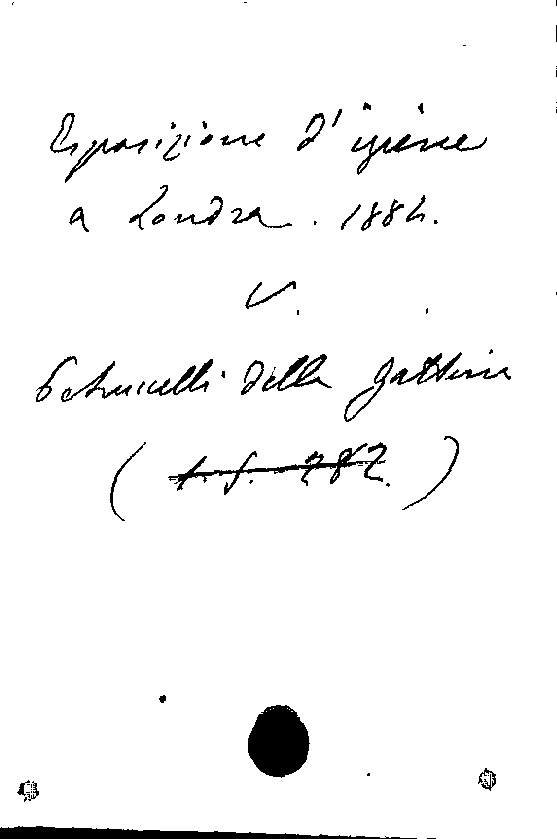 Esposizione d'igiene
a Londra. 1884.
V.
Petruccelli della Gattina
( 1. S. 282. )